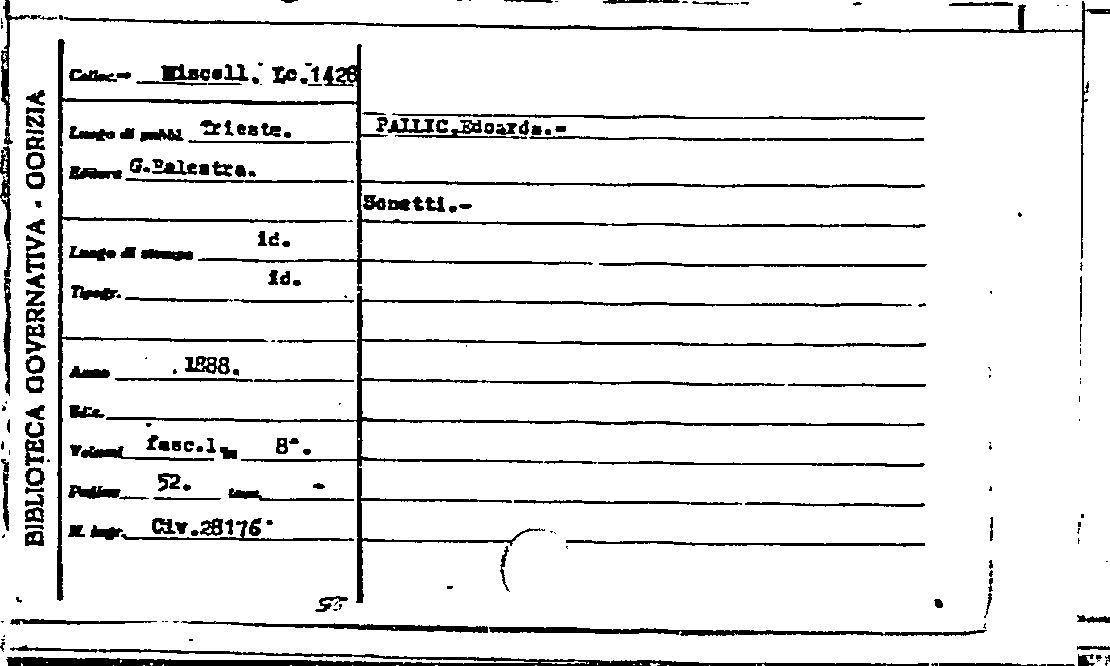 BIBLIOTECA GOVERNATIVA - GORIZIA
Colloc. Miscell. Lc.1428
Luogo di pubbl. Trieste.
Editore G.Balestra.
Luogo di stampa id.
Tipogr. id.
Anno 1888.
Ediz.
Volumi fasc.1 in 8°.
Pagine 52. -
N. ingr. Civ.28176
PALLIC, Edoardo.-
Sonetti.-